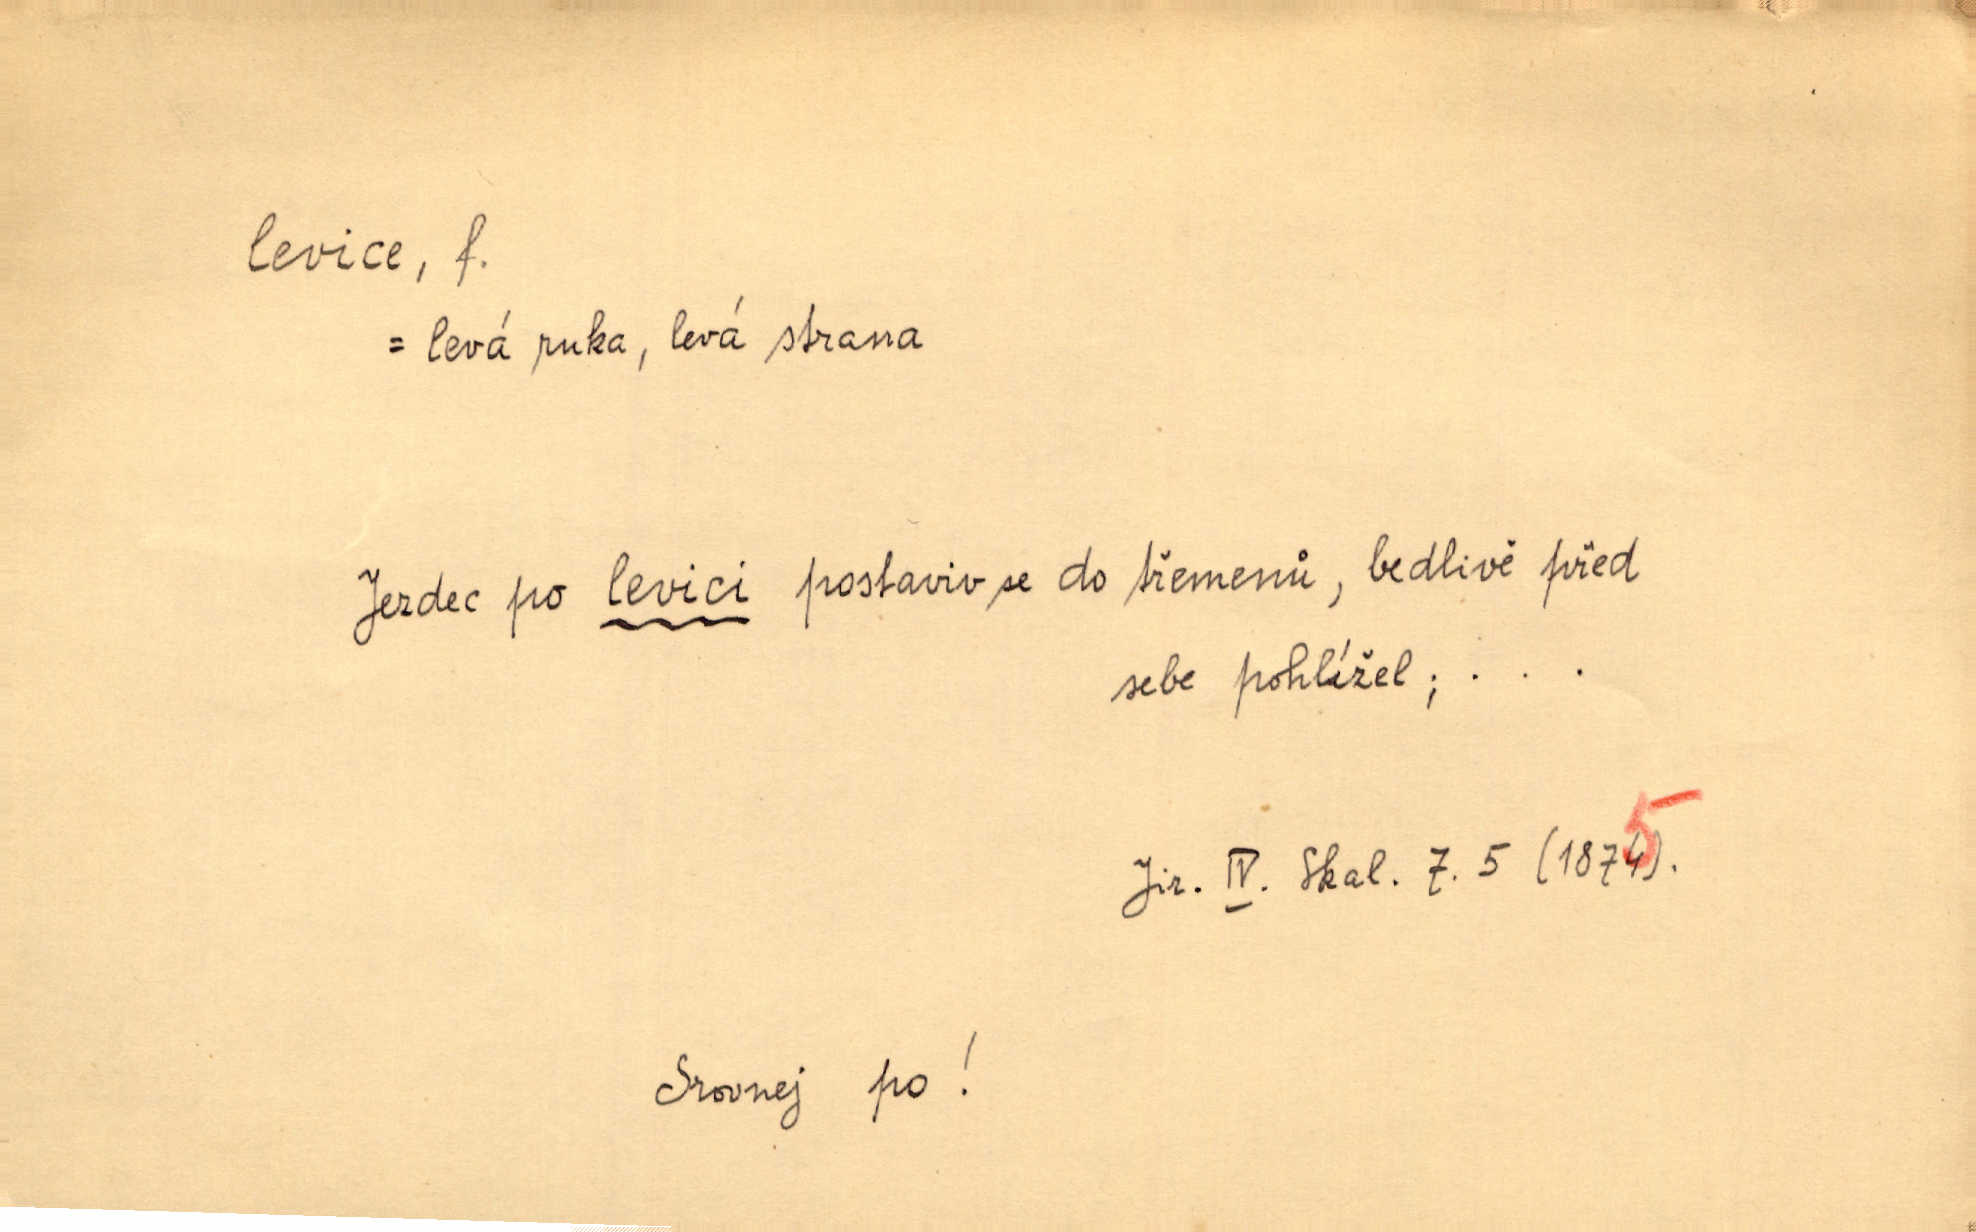 levice, f.
= levá ruka, levá strana
Jezdec po levici postaviv se do třemenů, bedlivě před
sebe pohlížel; . . .
Jir. IV. Skal. 7. 5 (1875).
Srovnej po!